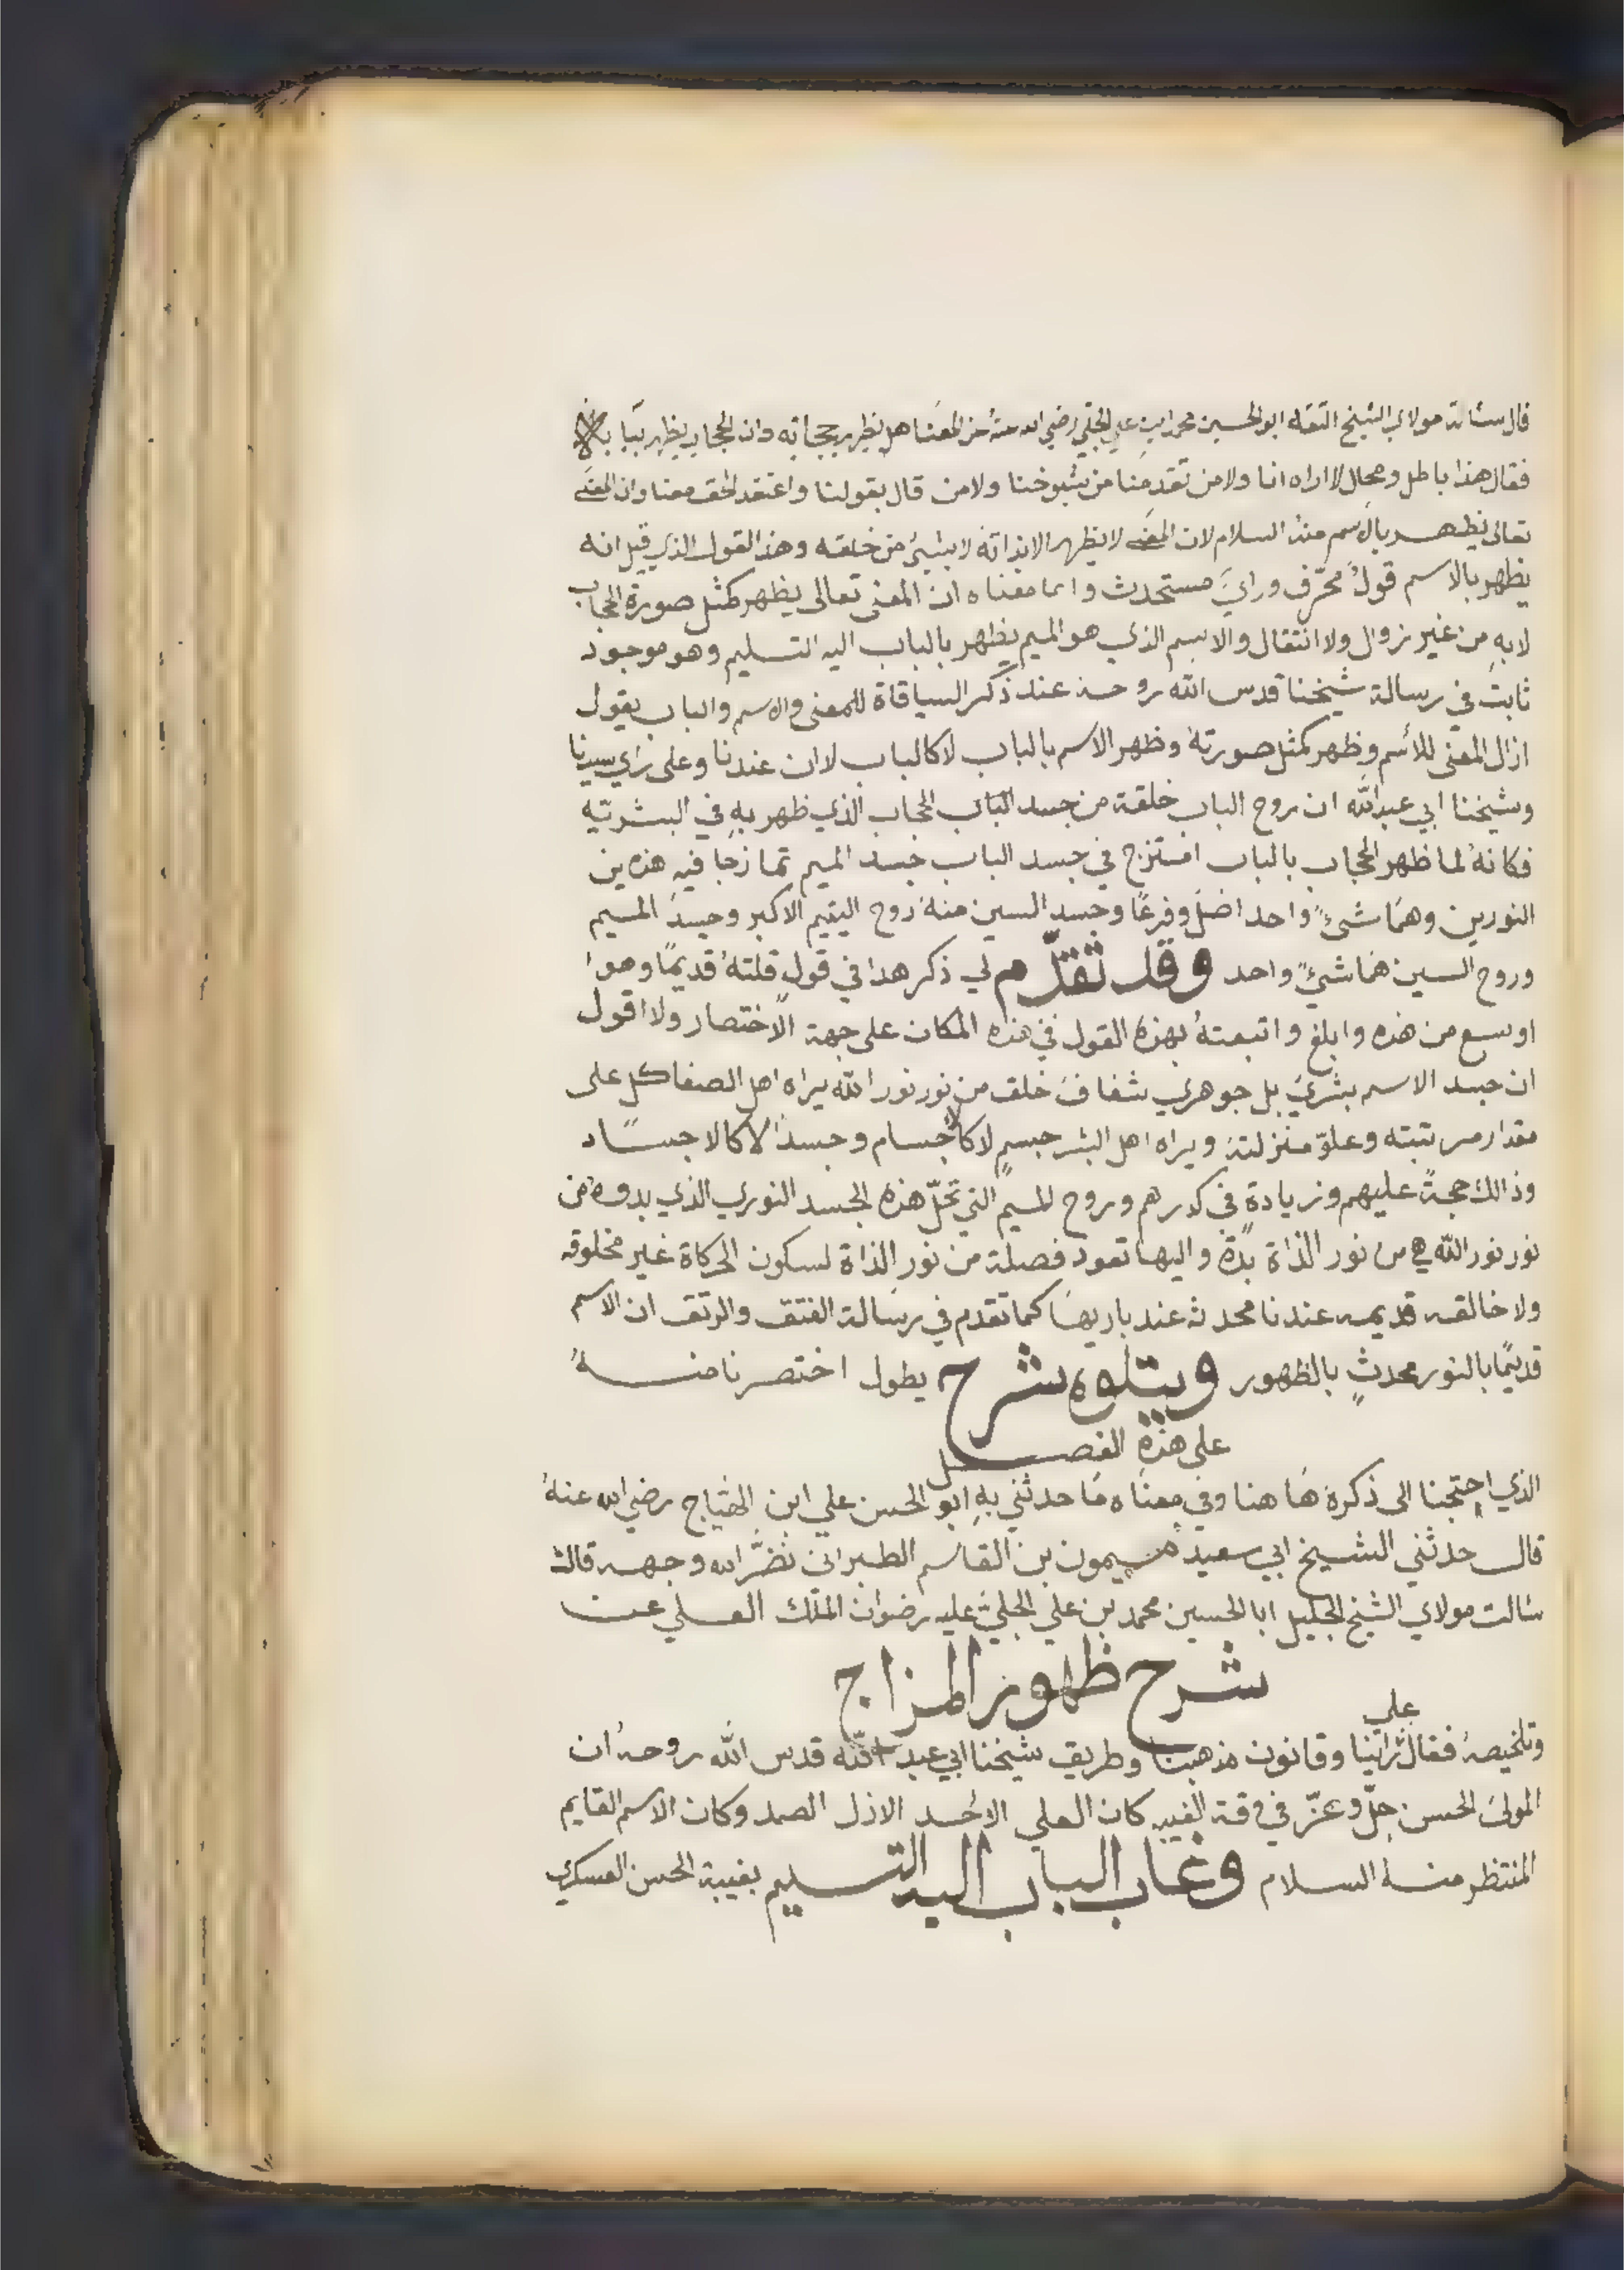 قال سئالت مولاي الشيخ الثقه ابو الحسين محمد ابن علي الجلي رضي الله عنهُ عن المعنا هل يظهر بحجابه وان الحجاب يظهر ببابه
فقال هذا باطل ومحال لا اراه انا ولا من تقدمنا من شيوخنا ولا من قال بقولنا واعتقد الحق معنا وان المعنى
تعالى يظهـر بالاسم منهُ السلام لان المعنى لا يظهر الا بذاته لا بشيئ من خلقه وهذا القول الذي قيل انه
يظهر بالاسم قولٌ محرّف ورايٌ مستحدث وانما معناه ان المعنى تعالى يظهر كمثل صورة الحجاب
لا بهِ من غير زوال ولا انتقال والاسم الذي هو الميم يظهر بالباب اليه التسليم وهو موجود
ثابت في رسالة شيخنا قدس الله روحه عند ذكر السياقاة للمعنى والاسم والباب يقول
ازال المعنى للاسم وظهر كمثل صورتهُ وظهر الاسم بالباب لا كالباب لان عندنا وعلى راي سيدنا
وشيخنا ابي عبد الله ان روح الباب خلقة من جسد الباب الحجاب الذي ظهر بهِ في البشريّه
فكانهُ لما ظهر الحجاب بالباب امتزج في جسد الباب جسد الميم تمازجا فيهِ هذين
النورين وهمَا شيءٌ واحد اصلٌ وفرعًا وجسد السين منهُ روح اليتيم الاكبر وجسد الميم
وروح السين همَا شيءٌ واحد وقد تقدّم لي ذكر هذا في قول قلتهُ قديمًا وهوا
اوسع من هذه وابلغ واتبعتهُ بهذه القول في هذه المكان على جهة الاختصار ولا اقول
ان جسد الاسم بشريٌ بل جوهري شفاف خلق من نور نور الله يراه اهل الصفا كل على
مقدار مرتبته وعلوّ منزلتهُ ويراه اهل البشر جسمٍ لا كالاجسام وجسدًا لا كالاجسـاد
وذالك حجةً عليهم وزيادة في كدرهم وروح الميم التي تحلّ هذه الجسد النوري الذي بدوه من
نور نور الله هي من نور الذاة بدّة واليها تعود فصلة من نور الذاة لسكون الحركاة غير مخلوقه
ولا خالقه قديمه عندنا محدثه عند باريهَا كما تقدم في رسَالة الفتق والرتق ان الاسم
قديمًا بالنور محدثٍ بالظهور ويتلوه شرح يطول اختصرنا منـهُ
على هذهِ الفصـل
الذي احتجنا الى ذكرهُ هَا هنا وفي معنَاه مَا حدثني بهِ ابو الحسن علي ابن الهتاج رضي الله عنهُ
قال حدثني الشيخ ابي سعيد ميمون بن القاسم الطبراني نضّر الله وجهه قال
سَالت مولاي الشيخ الجليل ابا الحسين محمد بن علي الجليّ عليه رضوان الملك العلي عن
شرح ظهور المزاج
وتلخيصهُ فقال على راينا وقانون مذهبنا وطريق شيخنا ابي عبد الله قدس الله روحهُ ان
المولىَ الحسن جلّ وعزّ في وقة الغيبه كان العلي الاحد الازل الصمد وكان الاسم القايم
المنتظر منـهُ السـلام وغاب الباب اليه التسليم بغيبة الحسن العسكري